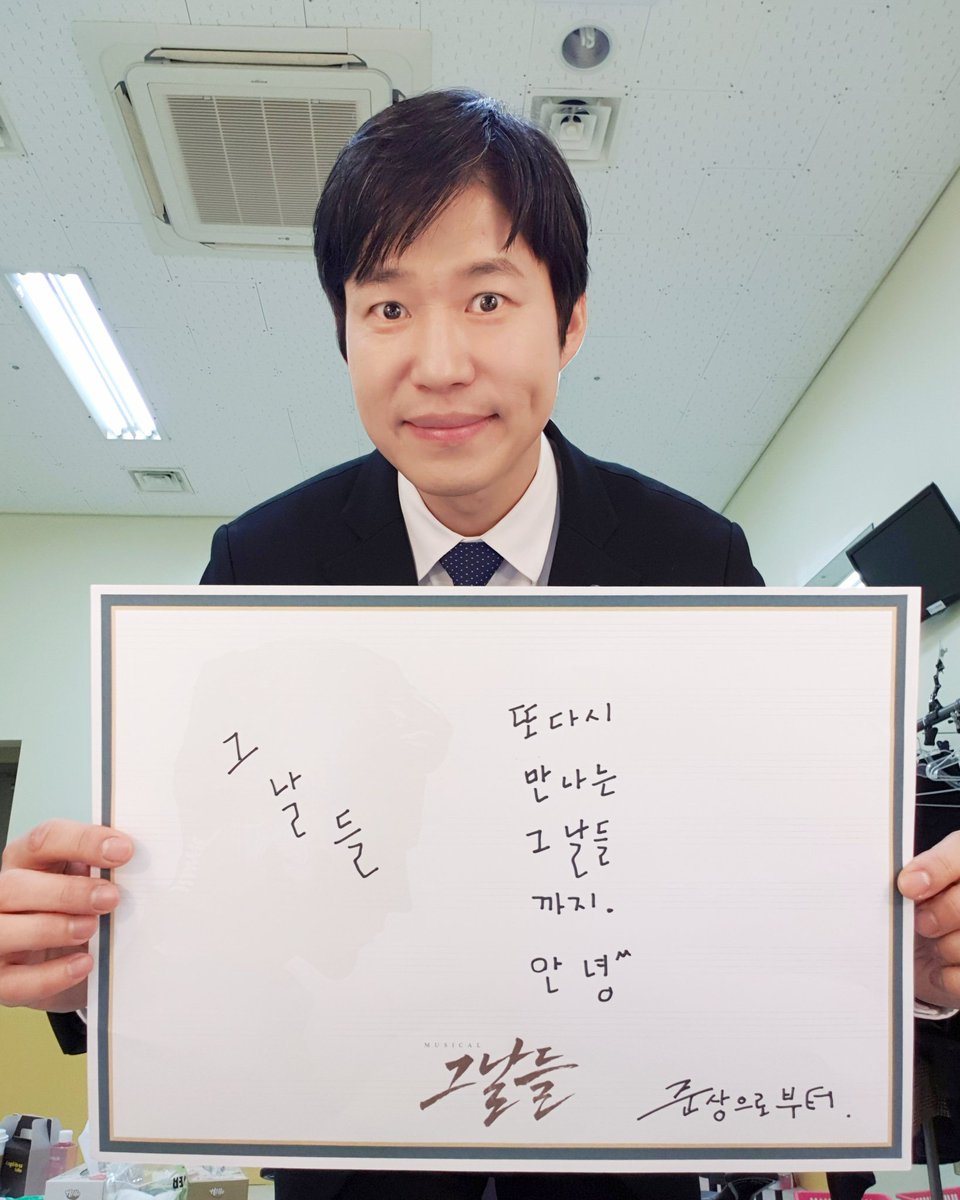 그날들
또다시
만나는
그날들
까지.
안녕^^
MUSICAL
그날들
준상으로부터.